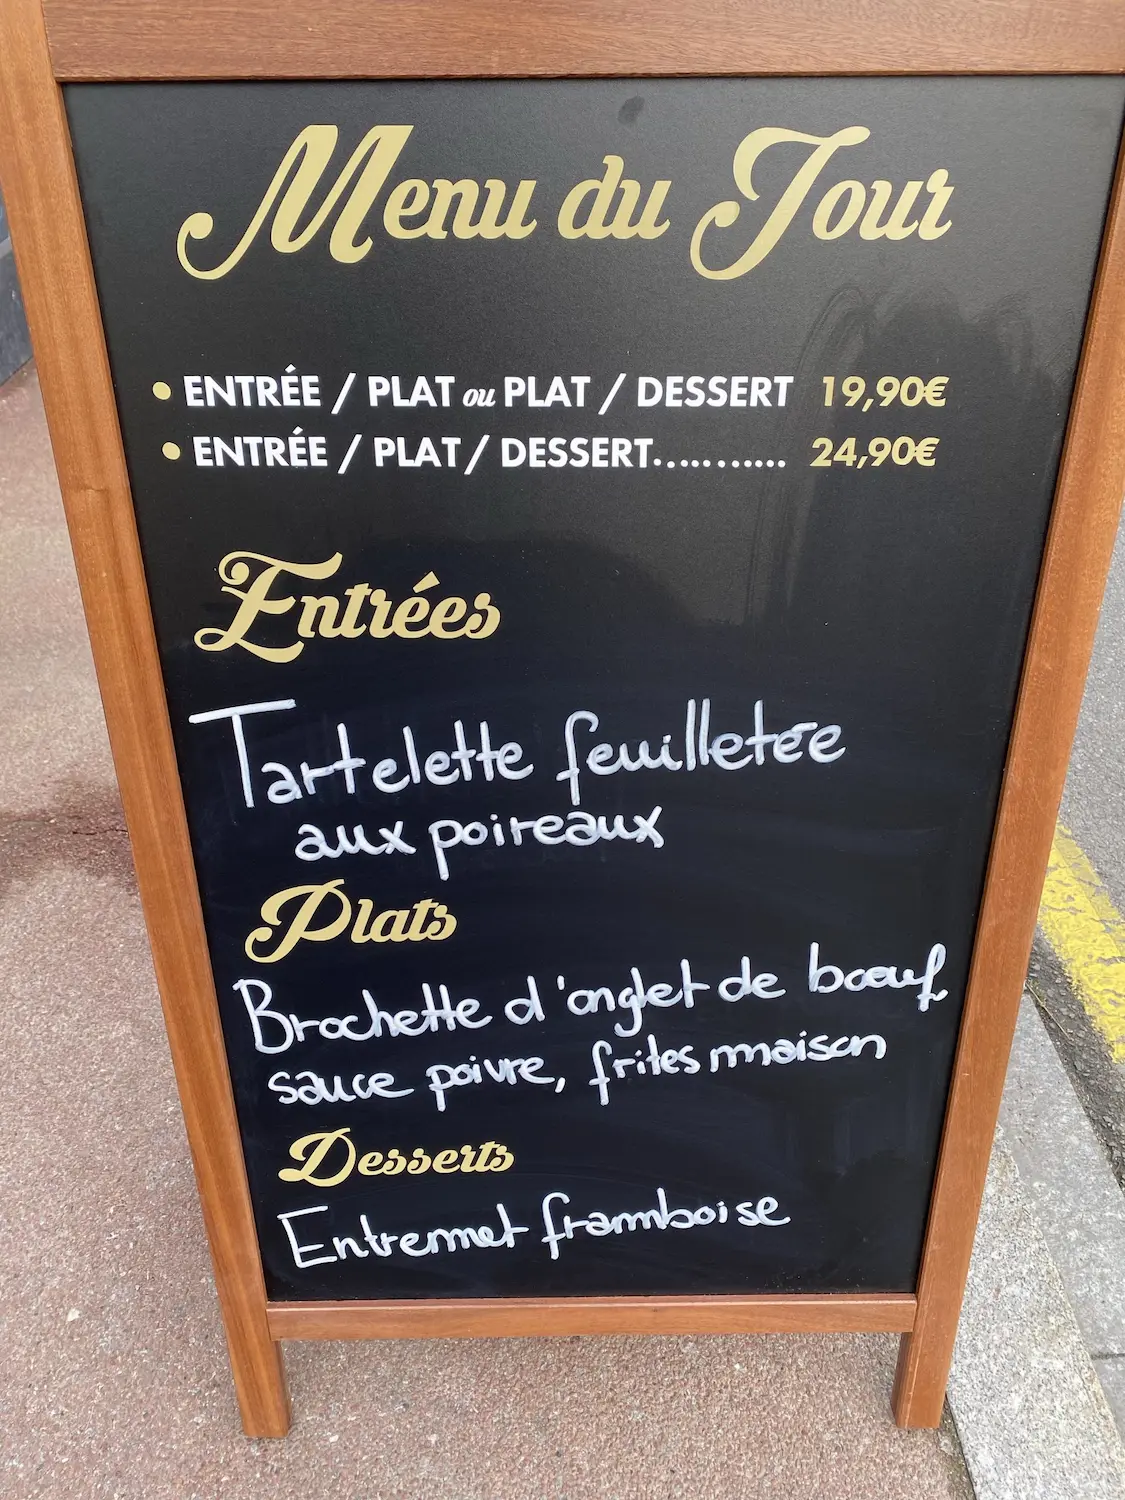 Menu du Jour
• ENTRÉE / PLAT ou PLAT / DESSERT 19,90€
• ENTRÉE / PLAT / DESSERT........... 24,90€
Entrées
Tartelette feuilletée
aux poireaux
Plats
Brochette d'onglet de bœuf,
sauce poivre, frites maison
Desserts
Entremet framboise